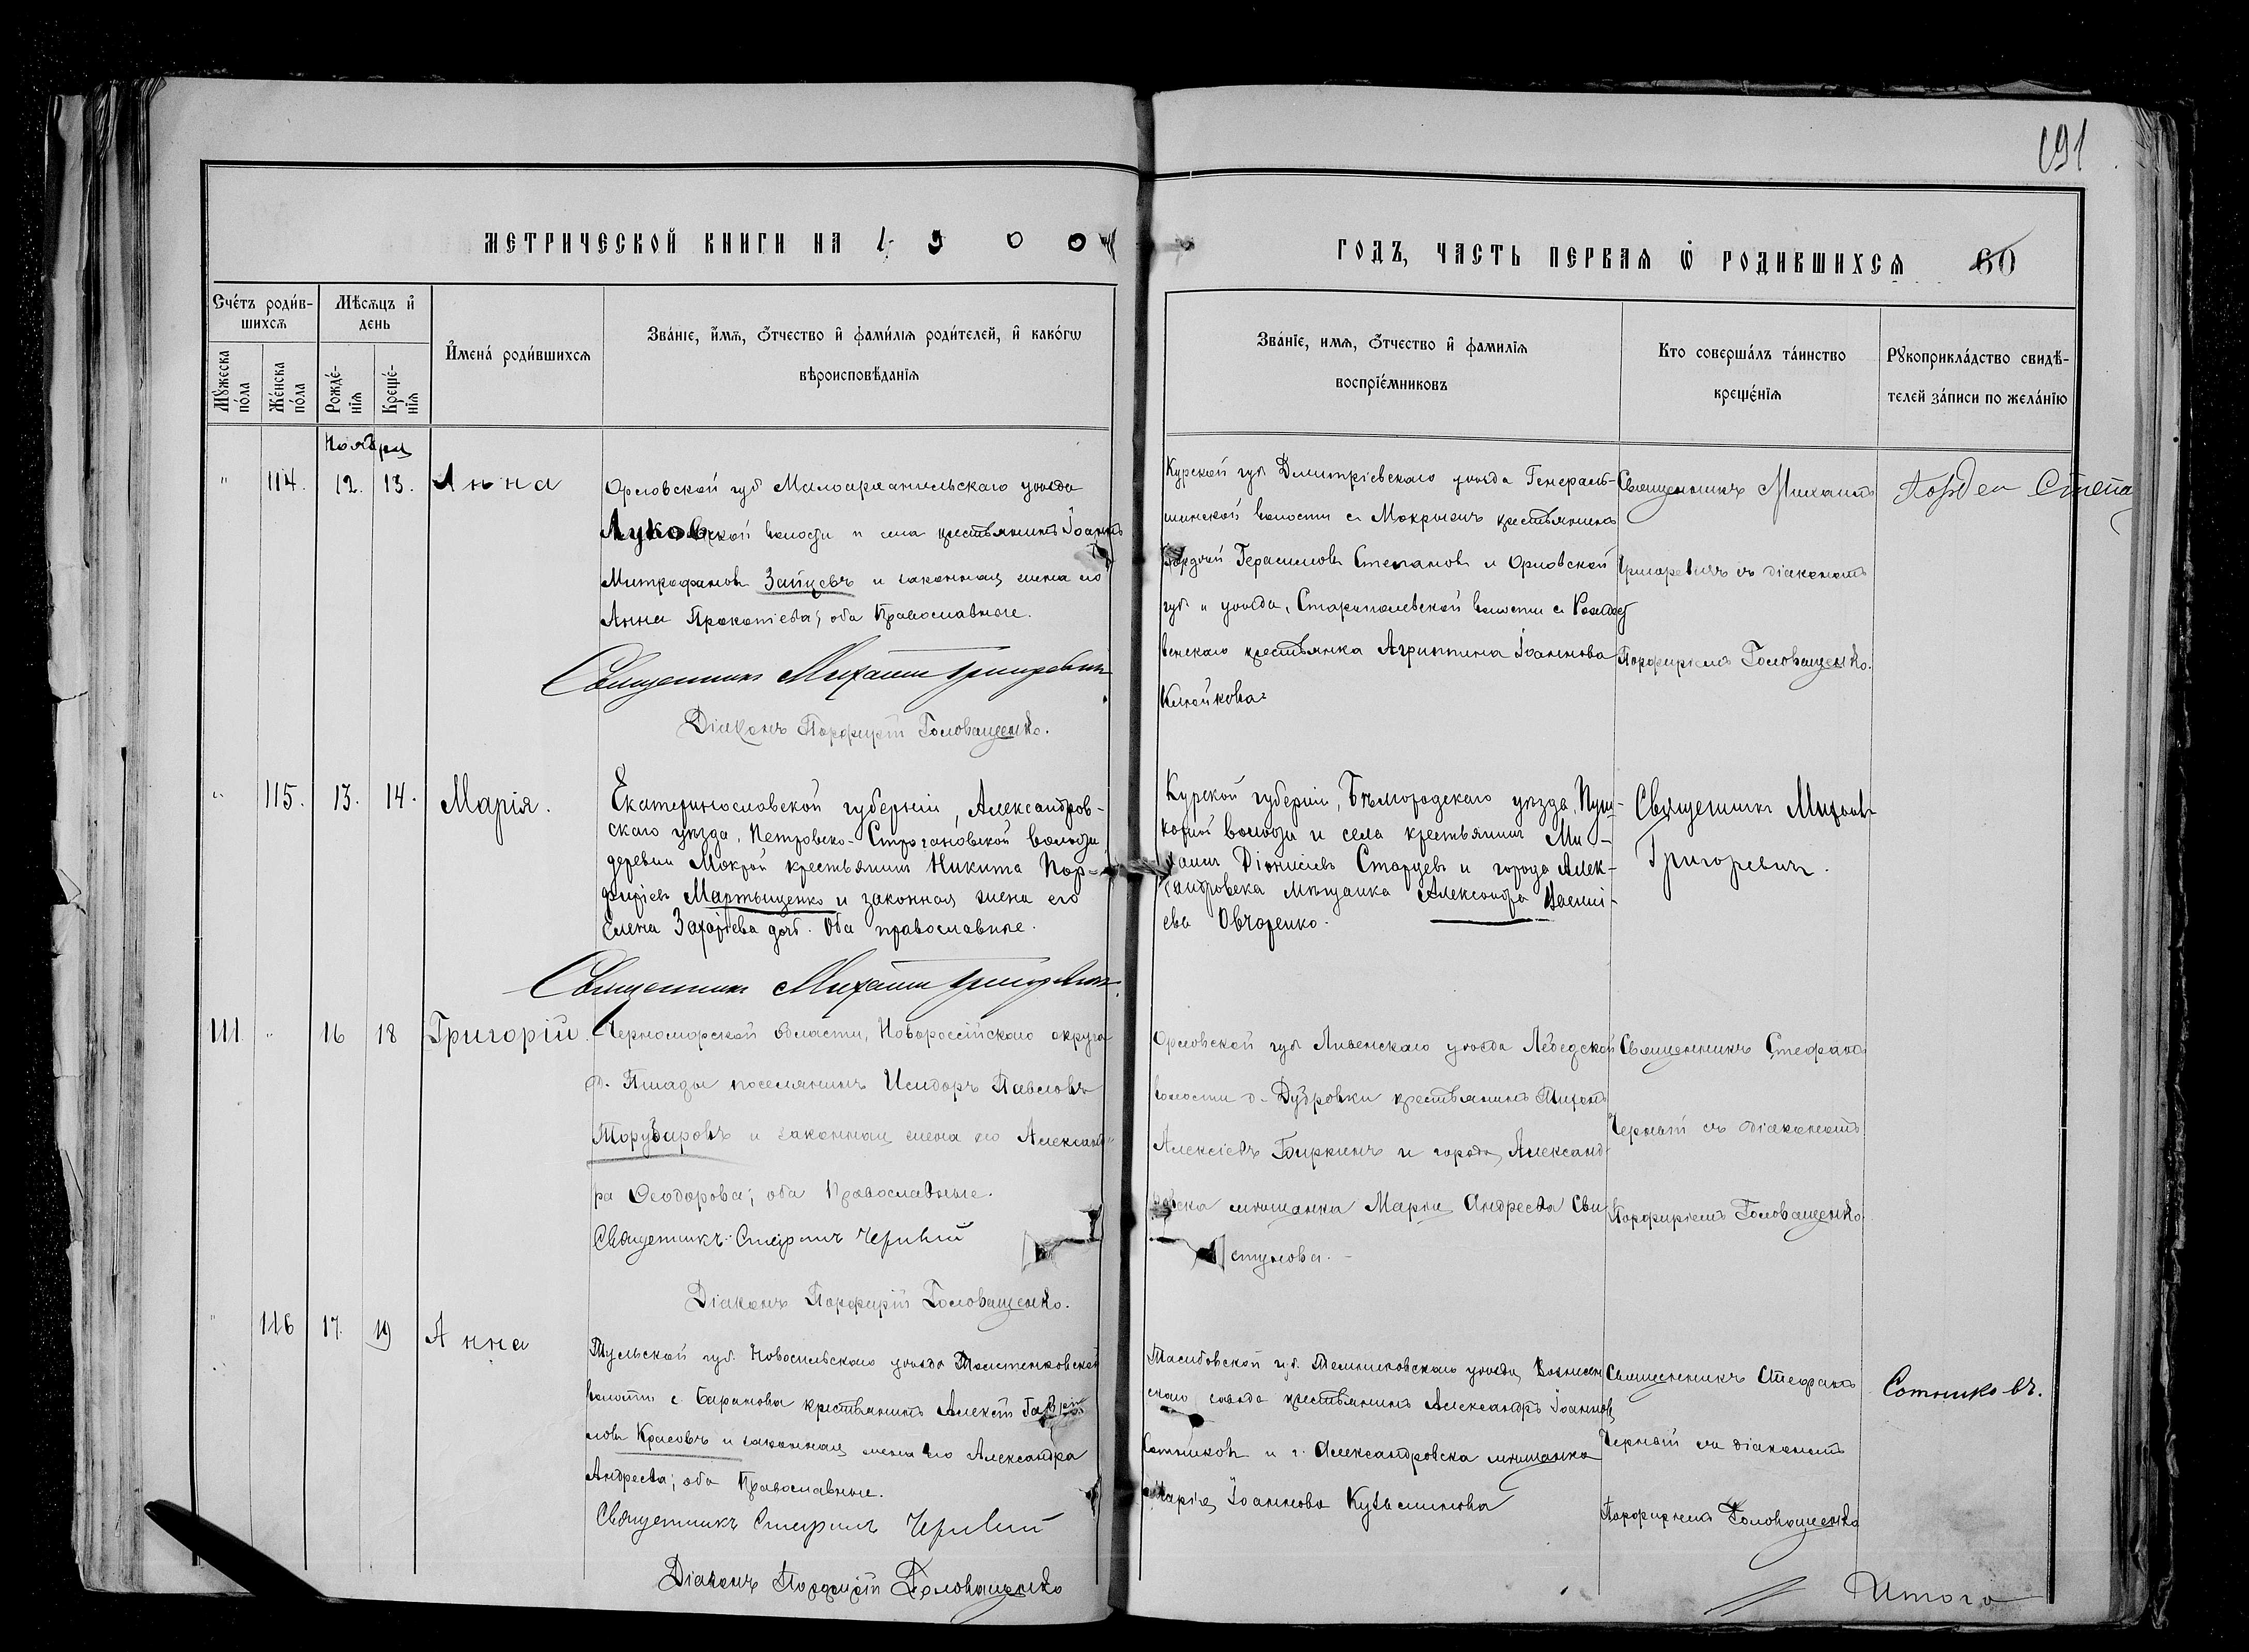 191
МЕТРИЧЕСКОЙ КНИГИ НА 1900
ГОДЪ, ЧАСТЬ ПЕРВАЯ Ѡ РОДИВШИХСЯ 60
Счетъ родив-
шихся
Мѣсяцъ и
день
Мужеска
пола
Женска
пола
Рожде-
нія
Креще-
нія
Имена родившихся
Званіе, имя, отчество и фамилія родителей, и какогѡ
вѣроисповѣданія
Званіе, имя, отчество и фамилія
воспріемниковъ
Кто совершалъ таинство
крещенія
Рукоприкладство свидѣ-
телей записи по желанію
Ноября
" 114. 12. 13. Анна
Орловской губ Малоархангельскаго уѣзда
Луковской волости и села крестьянинъ Іоаннъ
Митрофановъ Зайцевъ и законная жена его
Анна Прокопіева; оба Православные.
Священникъ Михаилъ Григоревичъ
Діаконъ Порфирій Головащенко.
Курской губ Дмитріевскаго уѣзда Генераль-
шинской волости с. Мокрыжъ крестьянинъ
Гордѣй Герасимовъ Степановъ и Орловской
губ и уѣзда, Старопалевской волости с. Рождест
венскаго крестьянка Агриппина Іоаннова
Клюйкова.
Священникъ Михаилъ
Григоревичъ съ діакономъ
Порфиріемъ Головащенко.
Гордеи Степа
" 115. 13. 14. Марія.
Екатеринославской губерніи, Александров-
скаго уѣзда, Петровско-Строгановской волости
деревни Мокрой крестьянинъ Никита Пор-
фиріевъ Мартыщенко и законная жена его
Елена Захаріева дочь. Оба православные.
Священникъ Михаилъ Григоревичъ
Курской губерніи, Бѣлгородскаго уѣзда, Пуш-
карной волости и села крестьянинъ Ми-
хаилъ Діонисіевъ Старцевъ и города Алек-
сандровска мѣщанка Александра Васильі-
ева Овчаренко.
Священникъ Михаилъ
Григоревичъ.
111 " 16 18 Григорій.
Черноморской области, Новороссійскаго округа
д. Пшады поселянинъ Исидоръ Павловъ
Торубаровъ и законная жена его Александ"
ра Ѳеодорова; оба Православные.
Священникъ Стефанъ Черный
Діаконъ Порфирій Головащенко.
Орловской губ Ливенскаго уѣзда Лебедской
волости д. Дубровки крестьянинъ
Алексіевъ и города Александ
ровска мѣщанка Марія Андреева Сви
стунова.
Священникъ Стефанъ
Черный съ діакономъ
Порфиріемъ Головащенко
" 116 17. 19 Анна
Тульской губ. Новосильскаго уѣзда
волости с. Баранова крестьянинъ Алексій Гаврі
ловъ Красовъ и законная жена его Александра
Андреева; оба Православные.
Священникъ Стефанъ Черный
Діаконъ Порфирій Головащенко
Тамбовской губ. Темниковскаго уѣзда, Вознесен
скаго завода крестьянинъ Александръ Іоанновъ
Сотниковъ и г. Александровска мѣщанка
Марія Іоаннова Кузьминова
Священникъ Стефанъ
Черный съ діакономъ
Порфиріемъ Головащенко
Сотниковъ.
Итого